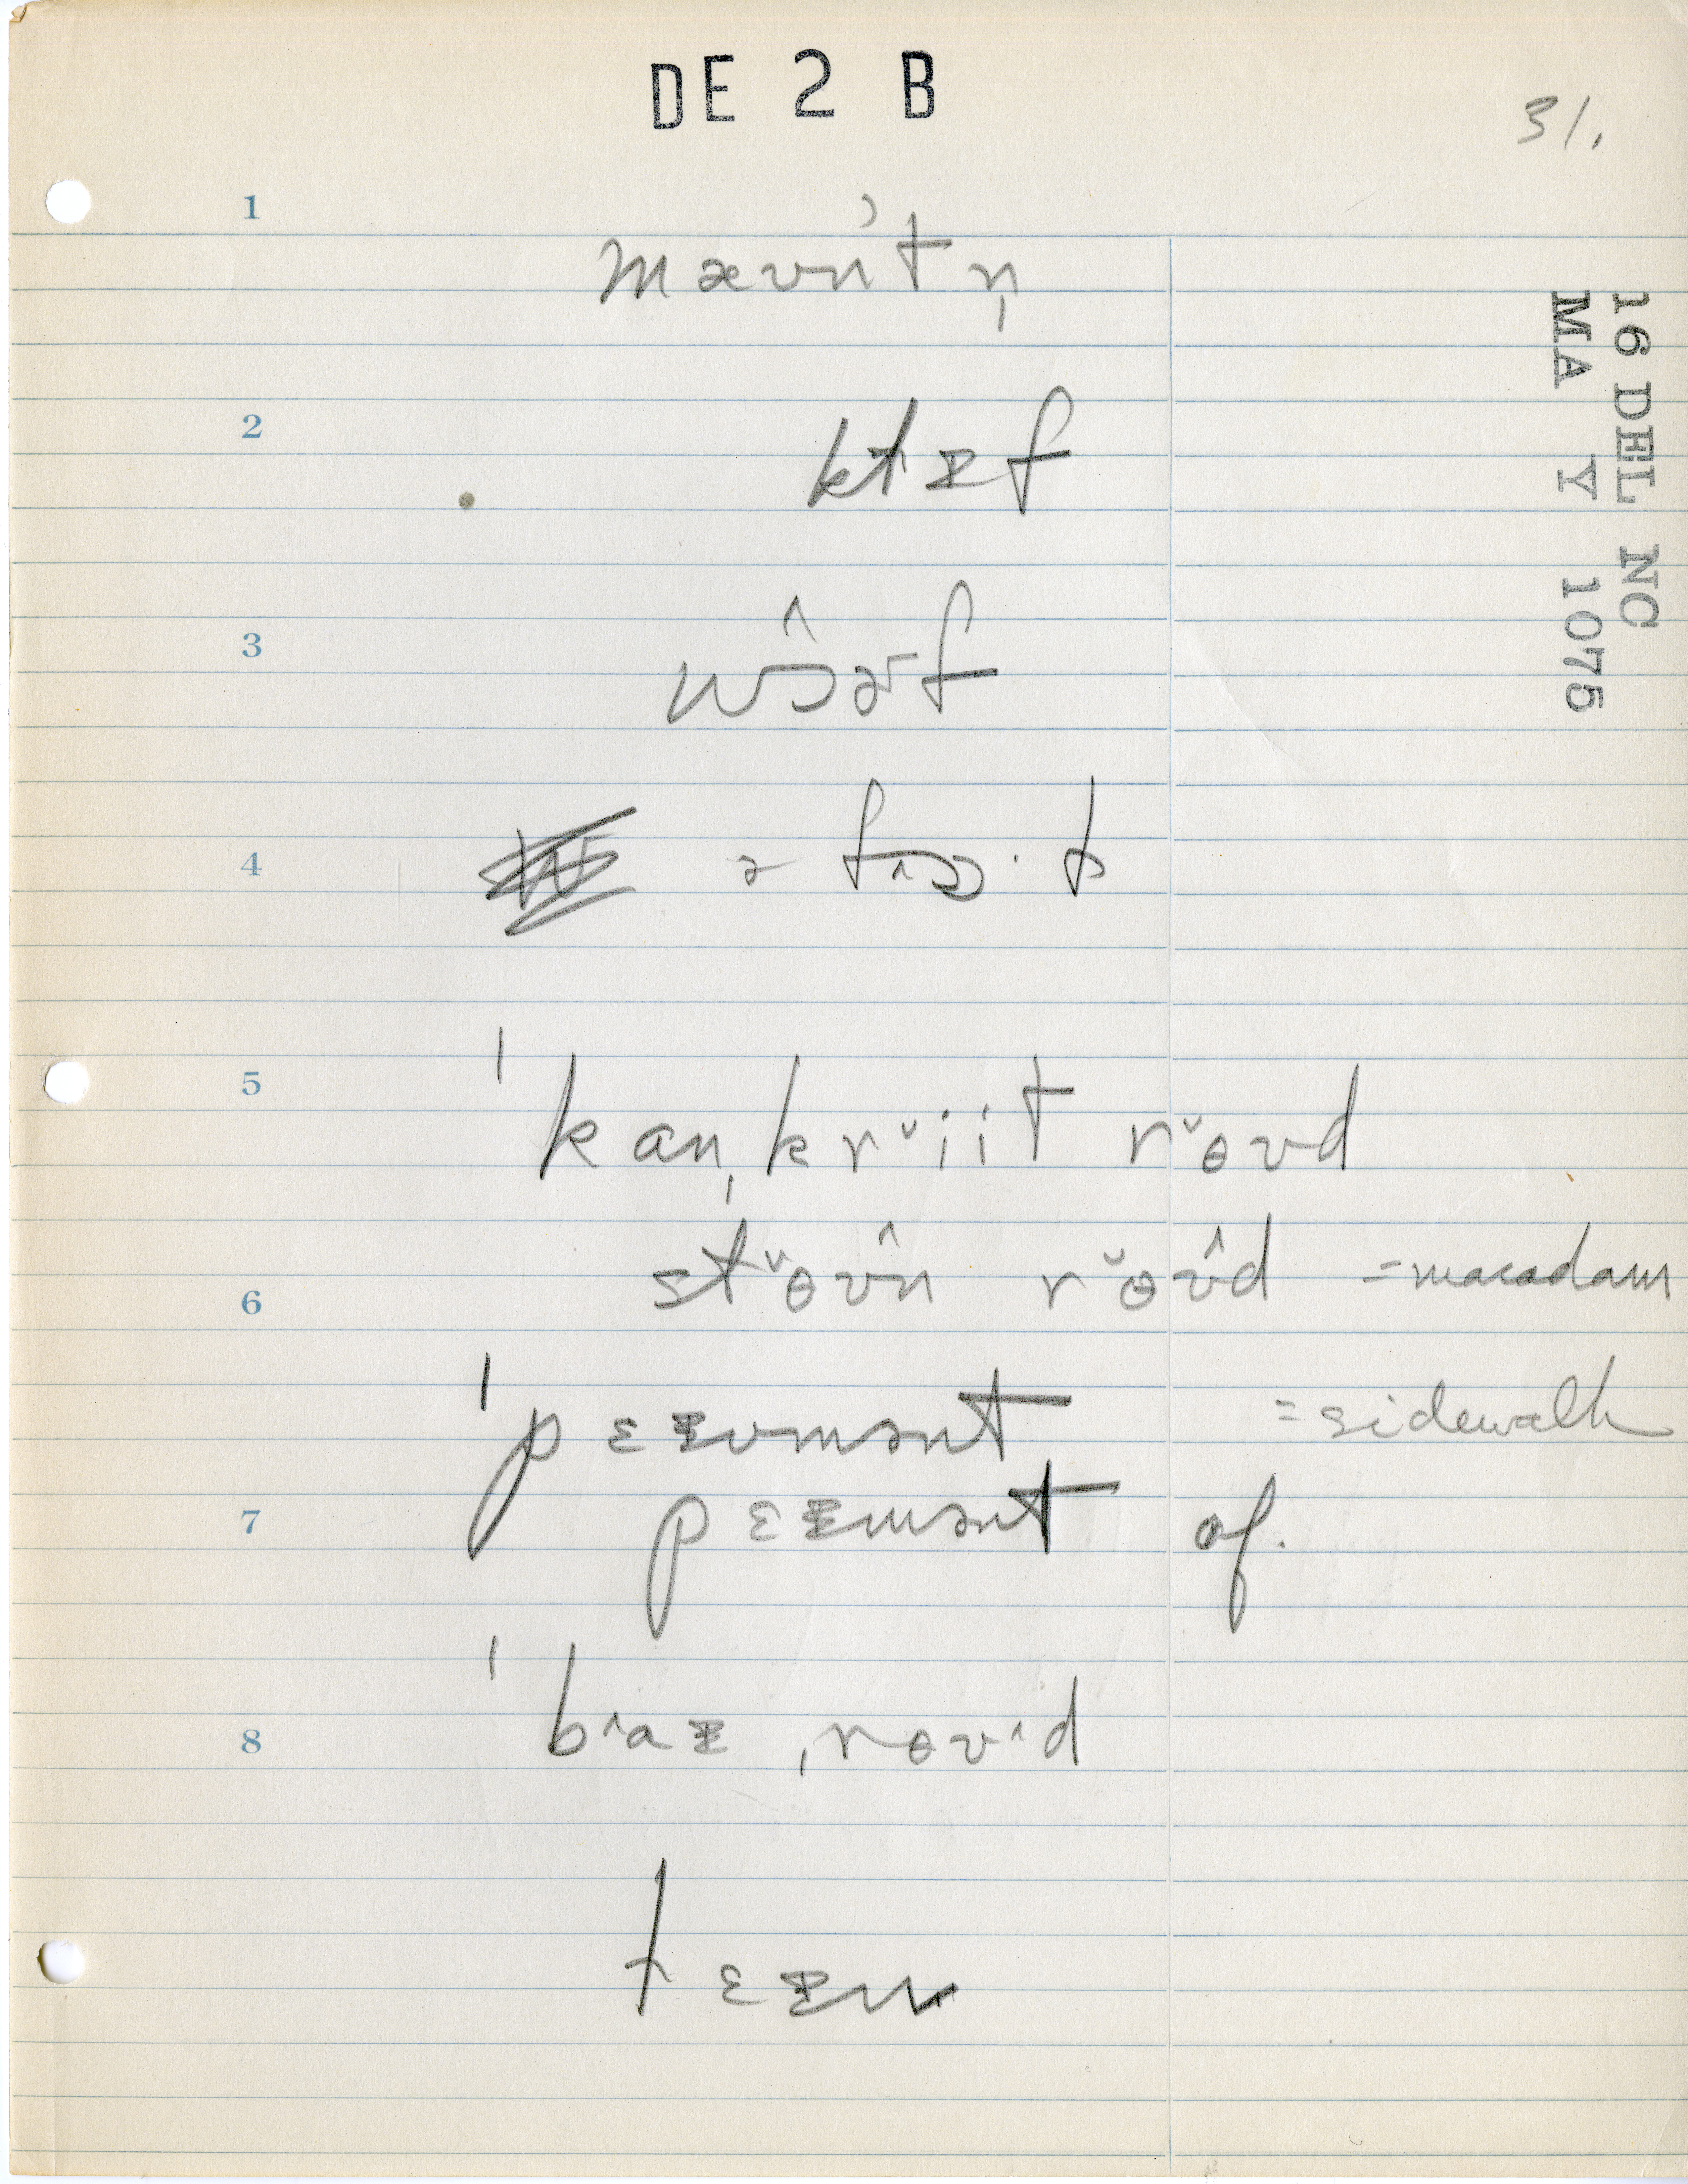 DE 2 B
31.
16 DEL NC
MA Y 1075
1
mæʊn't n̩
2
klɪf
3
wɔ̂ɚf
4
5
ˈkanˌkrˇiit rˇɵʊd
6
stˇɵʊ̂n rˇɵʊ̂d =macadam
ˈpɛɪvmənt =sidewalk
7
pɛɪmənt of.
8
ˈb^aɪ ˌrɵʊ^d
lɛɪn